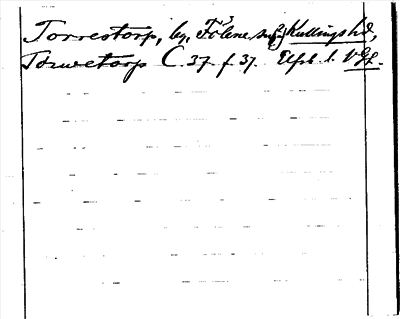 Torrestorp, by, Fölene sn, Kullings hd,
Torwetorp C. 37. f. 37. Elfsb. l. VGl.